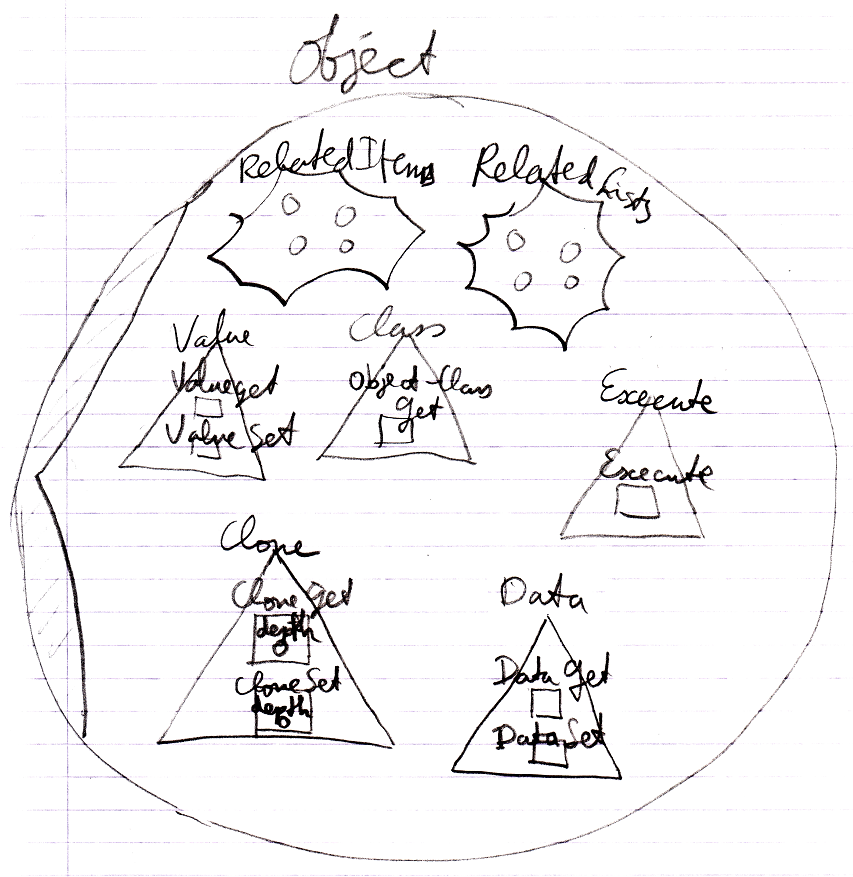 Object
Related Items
Related Lists
Value
Value get
Value Set
Class
Object Class
get
Execute
Execute
Clone
Clone Get
depth
Clone Set
depth
Data
Data Get
Data Set